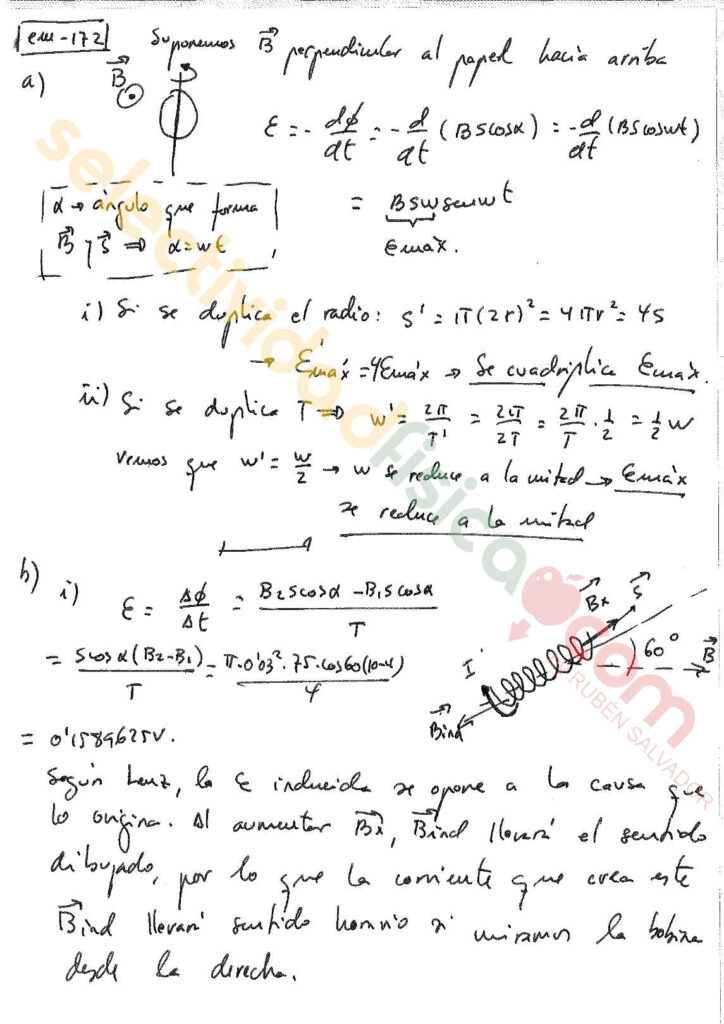 em-172
Suponemos B⃗ perpendicular al papel hacia arriba
a) B⃗
ε = - dφ/dt = - d/dt (B S cosα) = - d/dt (B S cos wt)
= B S w sen wt
εmáx.
α → ángulo que forma
B⃗ y S⃗ ⇒ α = wt
i) Si se duplica el radio: S' = π(2r)² = 4πr² = 4S
→ ε'máx = 4εmáx → Se cuadriplica εmáx.
ii) Si se duplica T ⇒ w' = 2π/T' = 2π/2T = 2π/T · 1/2 = 1/2 w
Vemos que w' = w/2 → w se reduce a la mitad → εmáx
se reduce a la mitad
b) i) ε = Δφ/Δt = (B2 S cosα - B1 S cosα)/T
= S cosα (B2 - B1)/T = π·0'03²·75·cos60(10-4)/4
= 0'1589625V.
B⃗x S⃗
60° B⃗
I
B⃗ind
Según Lenz, la ε inducida se opone a la causa que
lo origina. Al aumentar B⃗x, B⃗ind llevará el sentido
dibujado, por lo que la corriente que crea este
B⃗ind llevará sentido horario si miramos la bobina
desde la derecha.
selectividadfisica.com
RUBÉN SALVADOR